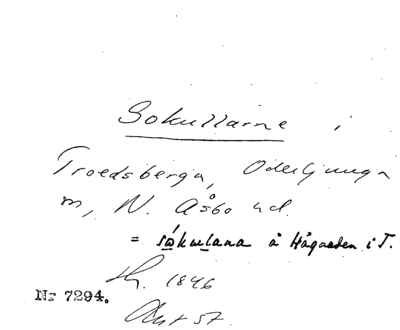 Sokullarne i
Troedsberga, Oderljunga
m, N. Åsbo hd.
= såkulana å Hågarden i T.
1846
Nr 7294.